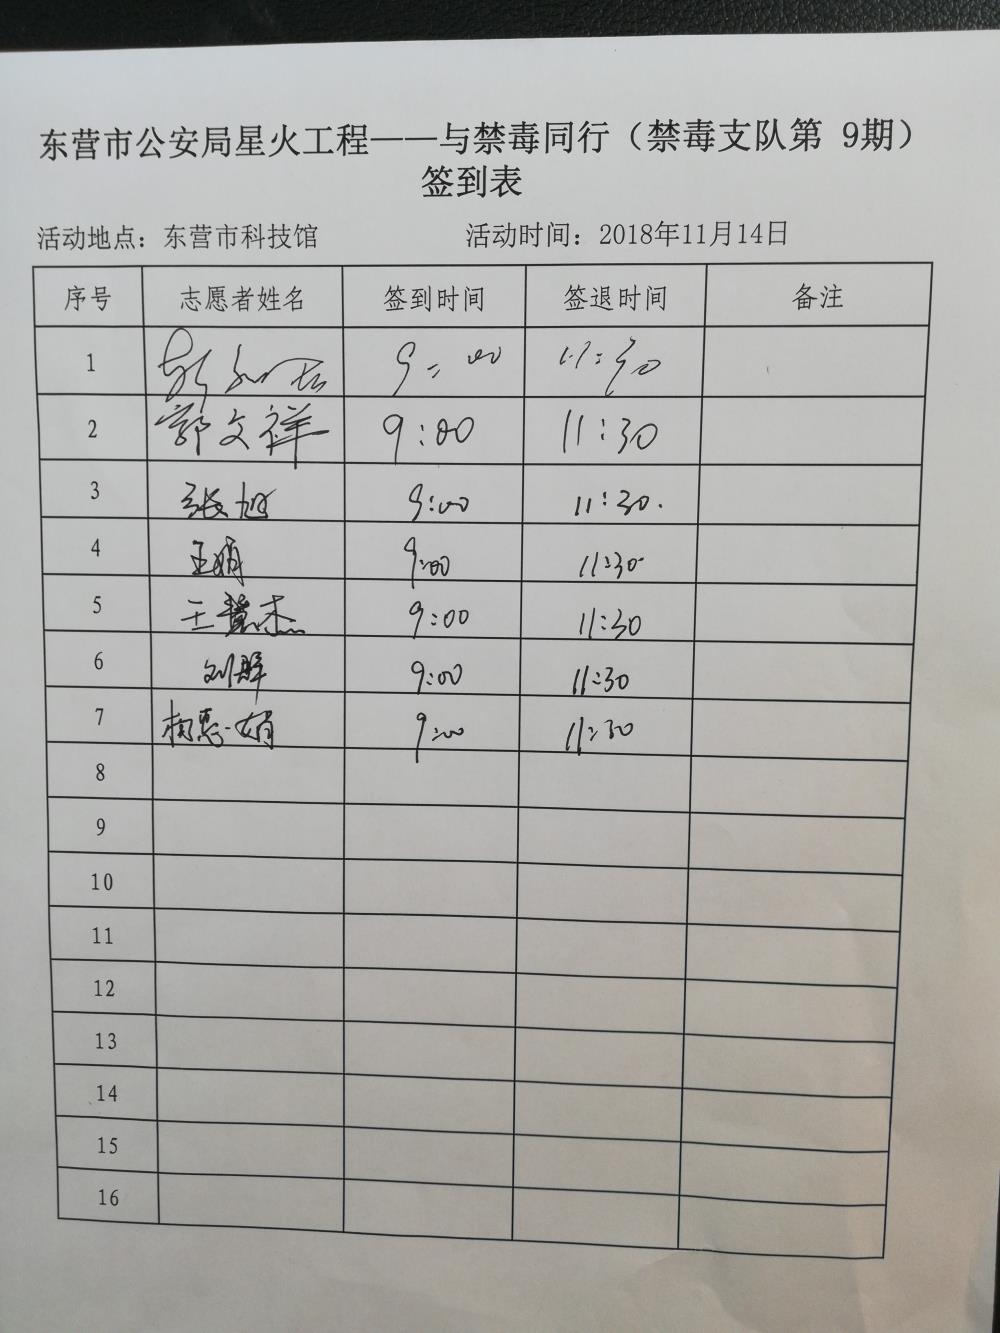 东营市公安局星火工程——与禁毒同行（禁毒支队第 9期）
签到表
活动地点：东营市科技馆 活动时间：2018年11月14日
序号 志愿者姓名 签到时间 签退时间 备注
1 9:00 11:30
2 郭文祥 9:00 11:30
3 张旭 9:00 11:30.
4 王娟 9:00 11:30
5 王冀杰 9:00 11:30
6 刘群 9:00 11:30
7 9:00 11:30
8
9
10
11
12
13
14
15
16